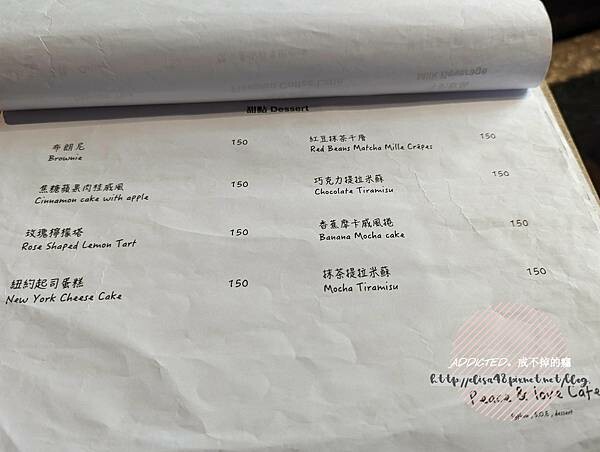 甜點 Dessert
布朗尼 150
Brownie
焦糖蘋果肉桂戚風 150
Cinnamon cake with apple
玫瑰檸檬塔 150
Rose Shaped Lemon Tart
紐約起司蛋糕 150
New York Cheese Cake
紅豆抹茶千層 150
Red Beans Matcha Mille Crêpes
巧克力提拉米蘇 150
Chocolate Tiramisu
香蕉摩卡戚風捲 150
Banana Mocha cake
抹茶提拉米蘇 150
Mocha Tiramisu
ADDICTED。戒不掉的癮
http://elisa98.pixnet.net/blog
Peace & love Cafe
dessert